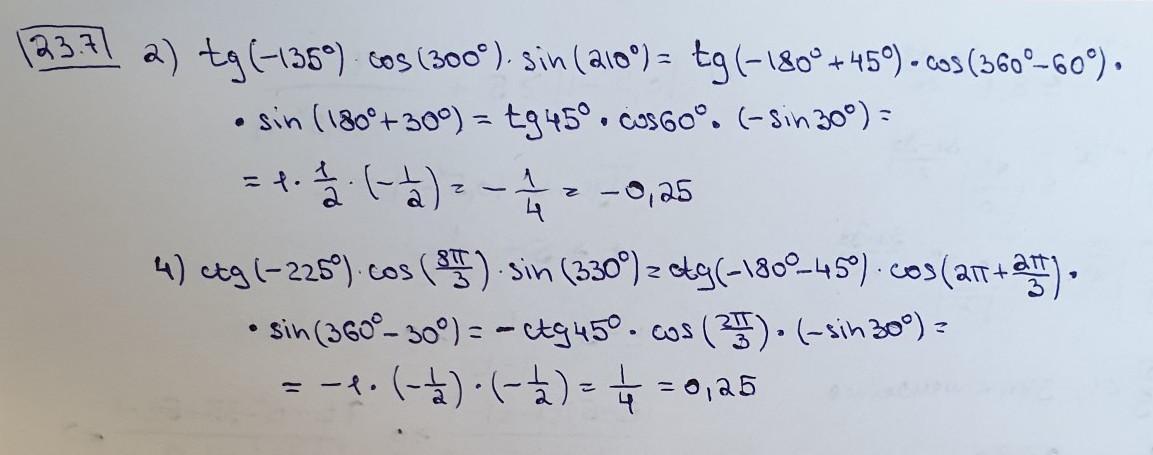 23.7 2) tg(-135°) · cos(300°) · sin(210°) = tg(-180° + 45°) · cos(360° - 60°) ·
· sin(180° + 30°) = tg45° · cos60° · (-sin30°) =
= 1 · 1/2 · (-1/2) = -1/4 = -0,25
4) ctg(-225°) · cos(8π/3) · sin(330°) = ctg(-180° - 45°) · cos(2π + 2π/3) ·
· sin(360° - 30°) = -ctg45° · cos(2π/3) · (-sin30°) =
= -1 · (-1/2) · (-1/2) = 1/4 = 0,25